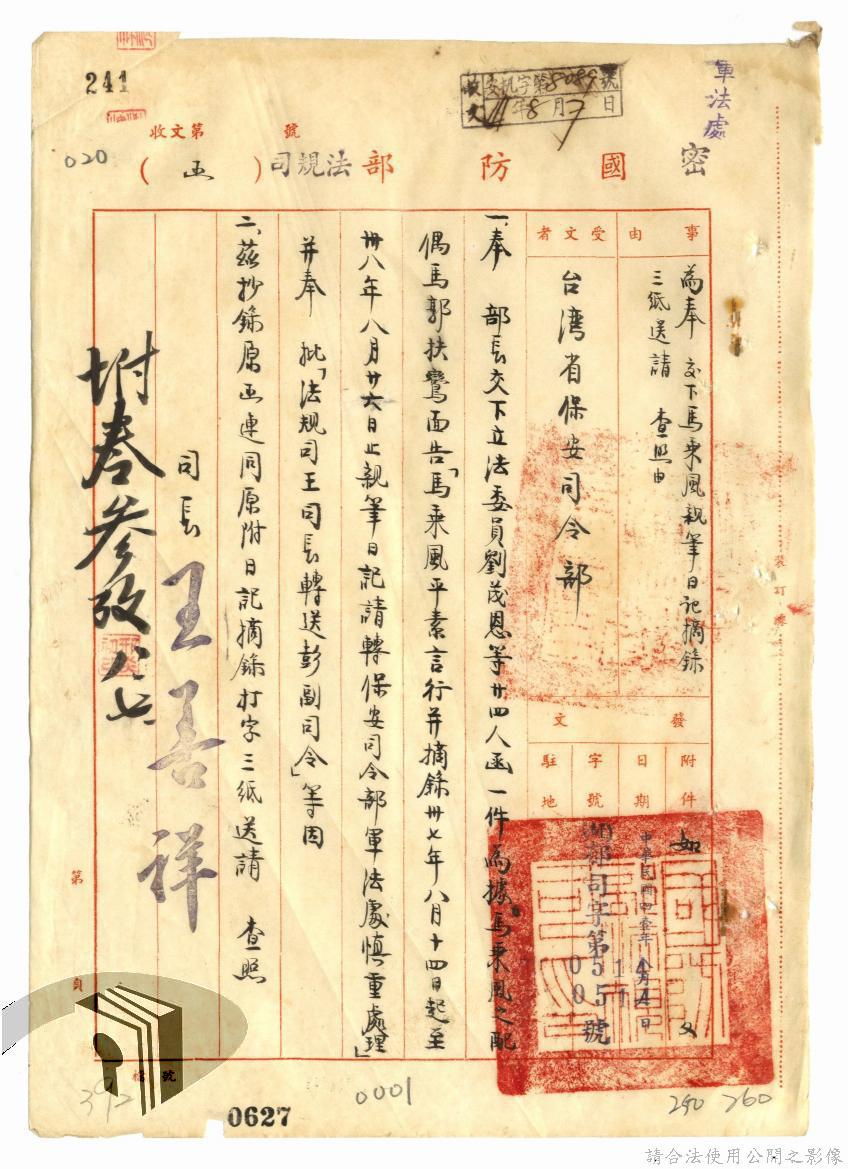 241
收文
安機字第8089號
41年8月7日
軍法處
收文第
號
020
密
國防部法規司(函)
事由
為奉 交下馬乘風親筆日記摘錄
三紙送請 查照由
受文者
台湾省保安司令部
發文
附件
如文
日期
中華民國四壹年8月4日
字號
(41)部司字第
0514
0514
號
駐地
一、奉 部長交下立法委員劉茂恩等廿四人函一件為據馬乘風之配
偶馬郭扶鸞面告「馬乘風平素言行并摘錄卅七年八月十四日起至
卅八年八月廿六日止親筆日記請轉保安司令部軍法處慎重處理」
并奉 批「法規司王司長轉送彭副司令」等因
二、茲抄錄原函連同原附日記摘錄打字三紙送請 查照
司長
王善祥
附卷參攷 八、七、
裝訂線
第
頁
檔號
392
0627
0001
290 260
請合法使用公開之影像